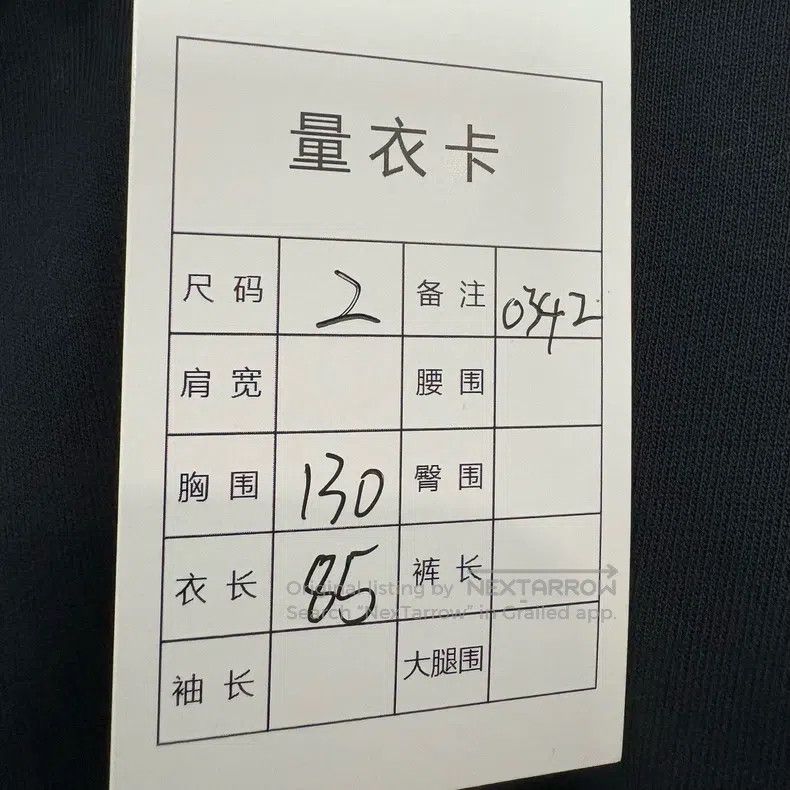 量衣卡
尺码 2 备注 0342
肩宽 腰围
胸围 130 臀围
衣长 85 裤长
Original listing by NEXTARROW
Search "NexTarrow" in Grailed app.
袖长 大腿围